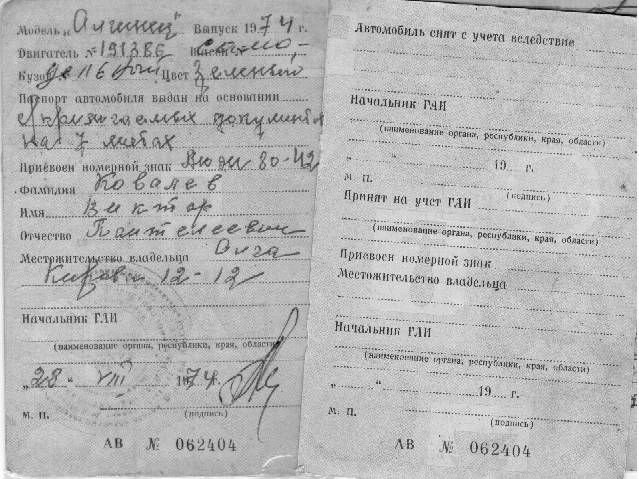 Модель „Алгинец" Выпуск 1974 г.
Двигатель № 191386 Шасси № само-
Кузов дельный Цвет Зеленый
Паспорт автомобиля выдан на основании
прилагаемых документов
на 7 листах
Присвоен номерной знак 80-42
Фамилия Ковалев
Имя Виктор
Отчество Пантелеевич
Местожительство владельца Алга
Кирова 12-12
Начальник ГАИ
(наименование органа, республики, края, области)
„28" VIII 1974 г.
М. П. (подпись)
АВ № 062404
Автомобиль снят с учета вследствие
Начальник ГАИ
(наименование органа, республики, края, области)
„ " 19 г.
М. П. (подпись)
Принят на учет ГАИ
(наименование органа, республики, края, области)
Присвоен номерной знак
Местожительство владельца
Начальник ГАИ
(наименование органа, республики, края, области)
„ " 19 г.
М. П. (подпись)
АВ № 062404